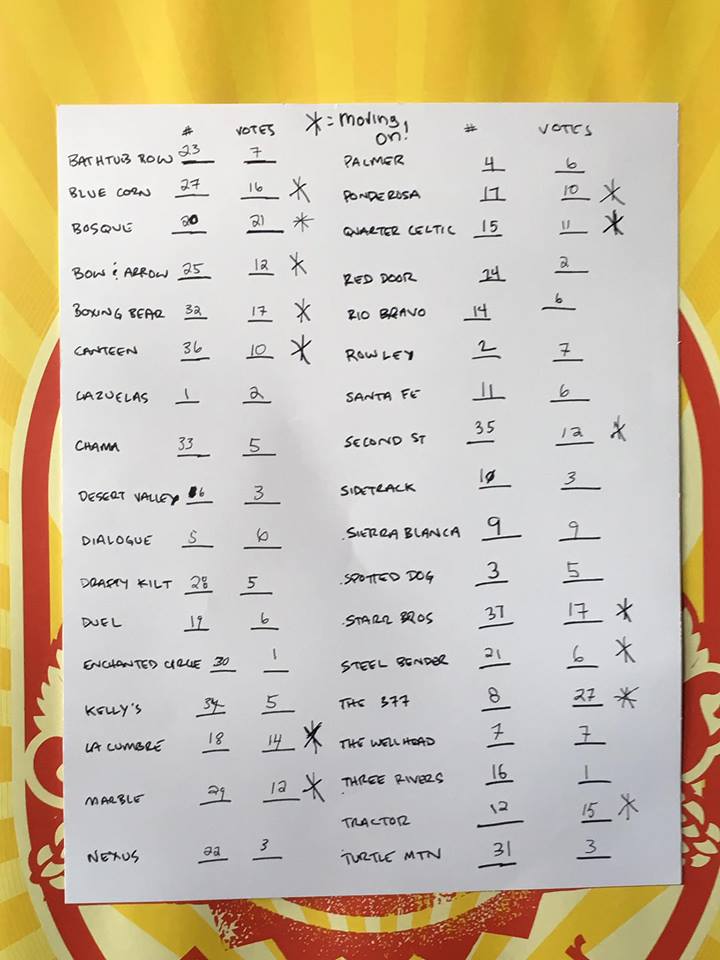 # VOTES * = moving on!
BATHTUB ROW 23 7
BLUE CORN 27 16 *
BOSQUE 20 21 *
BOW & ARROW 25 12 *
BOXING BEAR 32 17 *
CANTEEN 36 10 *
CAZUELAS 1 2
CHAMA 33 5
DESERT VALLEY 6 3
DIALOGUE 5 6
DRAFTY KILT 28 5
DUEL 19 6
ENCHANTED CIRCLE 30 1
KELLY'S 34 5
LA CUMBRE 18 14 *
MARBLE 29 12 *
NEXUS 22 3
# VOTES
PALMER 4 6
PONDEROSA 17 10 *
QUARTER CELTIC 15 11 *
RED DOOR 24 2
RIO BRAVO 14 6
ROWLEY 2 7
SANTA FE 11 6
SECOND ST 35 12 *
SIDETRACK 10 3
SIERRA BLANCA 9 9
SPOTTED DOG 3 5
STARR BROS 37 17 *
STEEL BENDER 21 6 *
THE 377 8 27 *
THE WELLHEAD 7 7
THREE RIVERS 16 1
TRACTOR 12 15 *
TURTLE MTN 31 3